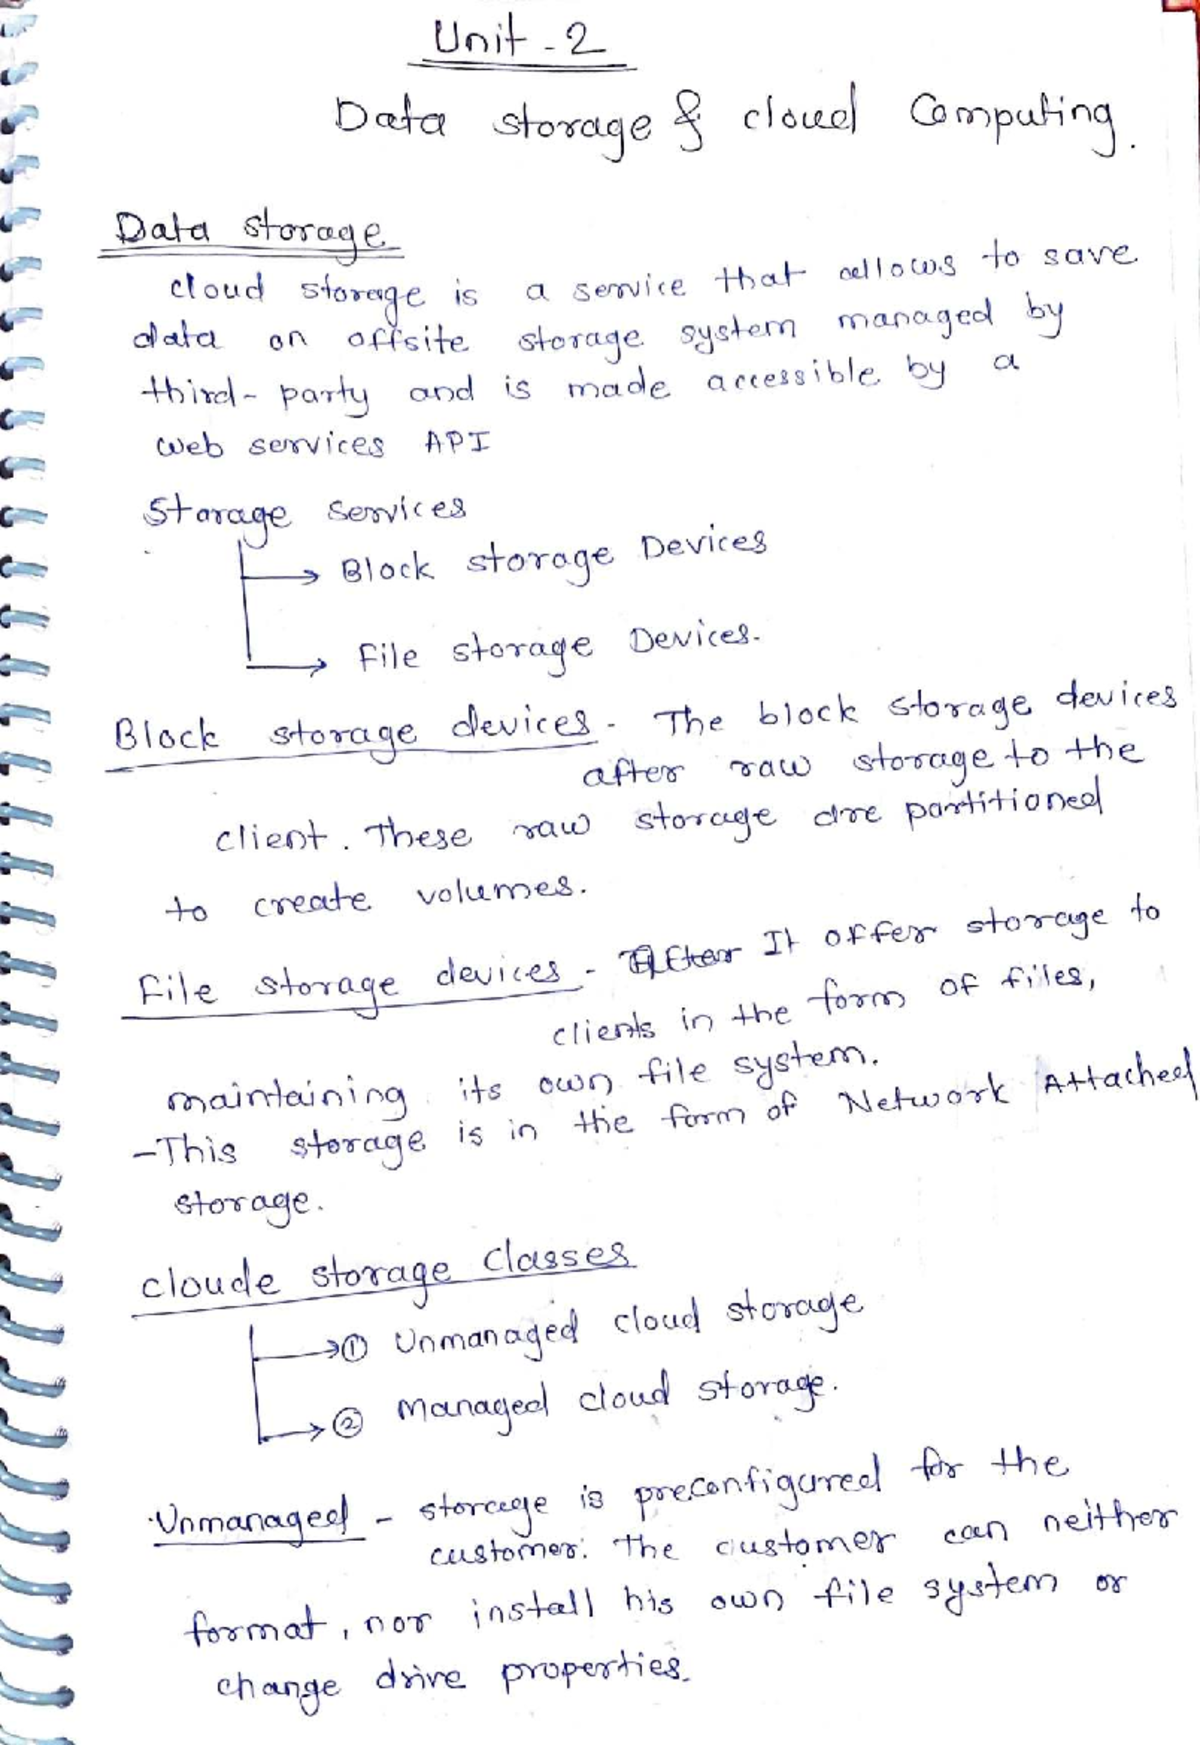 Unit - 2
Data storage & cloud Computing.
Data storage
cloud storage is a service that allows to save
data on offsite storage system managed by
third-party and is made accessible by a
web services API
Storage services
→ Block storage Devices
→ File storage Devices.
Block storage devices - The block storage devices
after raw storage to the
client. These raw storage are partitioned
to create volumes.
File storage devices - After It offer storage to
clients in the form of files,
maintaining its own file system.
- This storage is in the form of Network Attached
storage.
cloude storage classes
→ ① Unmanaged cloud storage
→ ② Managed cloud storage.
Unmanaged - storage is preconfigured for the
customer. The customer can neither
format, nor install his own file system or
change drive properties.